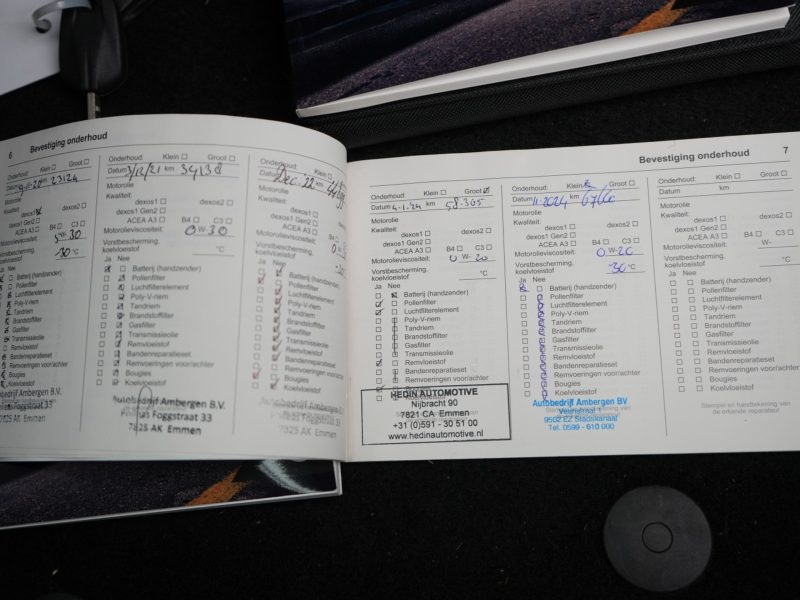 6 Bevestiging onderhoud
Klein Groot
Datum 9-11-20 km 23124
Motorolie
Kwaliteit:
dexos1 dexos2
dexos1 Gen2
ACEA A3 B4 C3
Motorolieviscositeit: 5W-30
Vorstbescherming,
koelvloeistof -30 °C
Ja Nee
Batterij (handzender)
Pollenfilter
Luchtfilterelement
Poly-V-riem
Tandriem
Brandstoffilter
Gasfilter
Transmissieolie
Remvloeistof
Bandenreparatieset
Remvoeringen voor/achter
Bougies
Koelvloeistof
Autobedrijf Ambergen B.V.
Foggstraat 33
7825 AK Emmen
Onderhoud: Klein Groot
Datum 3/12/21 km 34138
Motorolie
Kwaliteit:
dexos1 dexos2
dexos1 Gen2
ACEA A3 B4 C3
Motorolieviscositeit: 0 W-30
Vorstbescherming,
koelvloeistof °C
Ja Nee
Batterij (handzender)
Pollenfilter
Luchtfilterelement
Poly-V-riem
Tandriem
Brandstoffilter
Gasfilter
Transmissieolie
Remvloeistof
Bandenreparatieset
Remvoeringen voor/achter
Bougies
Koelvloeistof
Autobedrijf Ambergen B.V.
Foggstraat 33
7825 AK Emmen
Onderhoud: Klein Groot
Datum Dec. '22 km
Motorolie
Kwaliteit:
dexos1 dexos2
dexos1 Gen2
ACEA A3 B4 C3
Motorolieviscositeit:
Vorstbescherming,
koelvloeistof
Ja Nee
Batterij (handzender)
Pollenfilter
Luchtfilterelement
Poly-V-riem
Tandriem
Brandstoffilter
Gasfilter
Transmissieolie
Remvloeistof
Bandenreparatieset
Remvoeringen voor/achter
Bougies
Koelvloeistof
Autobedrijf Ambergen B.V.
Foggstraat 33
7825 AK Emmen
Bevestiging onderhoud 7
Onderhoud: Klein Groot
Datum 4-1-24 km 58.365
Motorolie
Kwaliteit:
dexos1 dexos2
dexos1 Gen2
ACEA A3 B4 C3
Motorolieviscositeit: 0 W- 20
Vorstbescherming,
koelvloeistof °C
Ja Nee
Batterij (handzender)
Pollenfilter
Luchtfilterelement
Poly-V-riem
Tandriem
Brandstoffilter
Gasfilter
Transmissieolie
Remvloeistof
Bandenreparatieset
Remvoeringen voor/achter
HEDIN AUTOMOTIVE
Nijbracht 90
7821 CA Emmen
+31 (0)591 - 30 51 00
www.hedinautomotive.nl
Onderhoud: Klein Groot
Datum 11-2024 km
Motorolie
Kwaliteit:
dexos1 dexos2
dexos1 Gen2
ACEA A3 B4 C3
Motorolieviscositeit: 0 W-20
Vorstbescherming,
koelvloeistof -30 °C
Ja Nee
Batterij (handzender)
Pollenfilter
Luchtfilterelement
Poly-V-riem
Tandriem
Brandstoffilter
Gasfilter
Transmissieolie
Remvloeistof
Bandenreparatieset
Remvoeringen voor/achter
Bougies
Koelvloeistof
Autobedrijf Ambergen BV
9502 EZ Stadskanaal
Tel. 0599 - 610 000
Onderhoud: Klein Groot
Datum km
Motorolie
Kwaliteit:
dexos1 dexos2
dexos1 Gen2
ACEA A3 B4 C3
Motorolieviscositeit: W-
Vorstbescherming,
koelvloeistof °C
Ja Nee
Batterij (handzender)
Pollenfilter
Luchtfilterelement
Poly-V-riem
Tandriem
Brandstoffilter
Gasfilter
Transmissieolie
Remvloeistof
Bandenreparatieset
Remvoeringen voor/achter
Bougies
Koelvloeistof
Stempel en handtekening van
de erkende reparateur